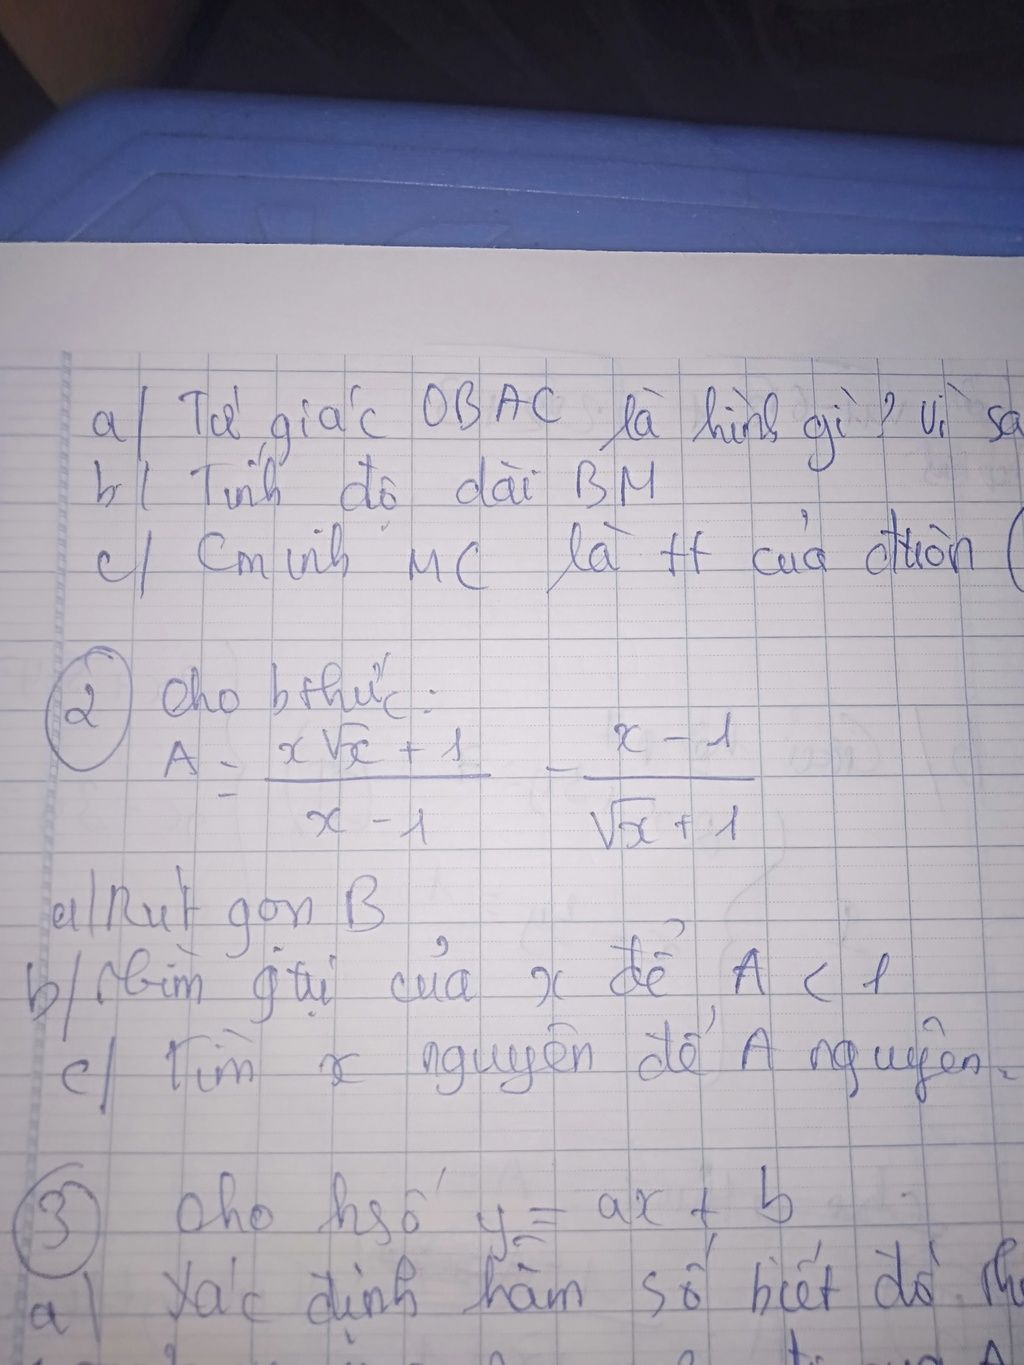 a/ Tứ giác OBAC là hình gì? Vì
b/ Tính độ dài BM
c/ Cminh MC là tt của đtròn (
2 Cho bthức:
A = \frac{x\sqrt{x} + 1}{x - 1} - \frac{x - 1}{\sqrt{x} + 1}
a/ Rút gọn B
b/ Tìm gtrị của x để A < 1
c/ Tìm x nguyên để A nguyên.
3 Cho hsố y = ax + b
a/ Xác định hàm số biết đồ